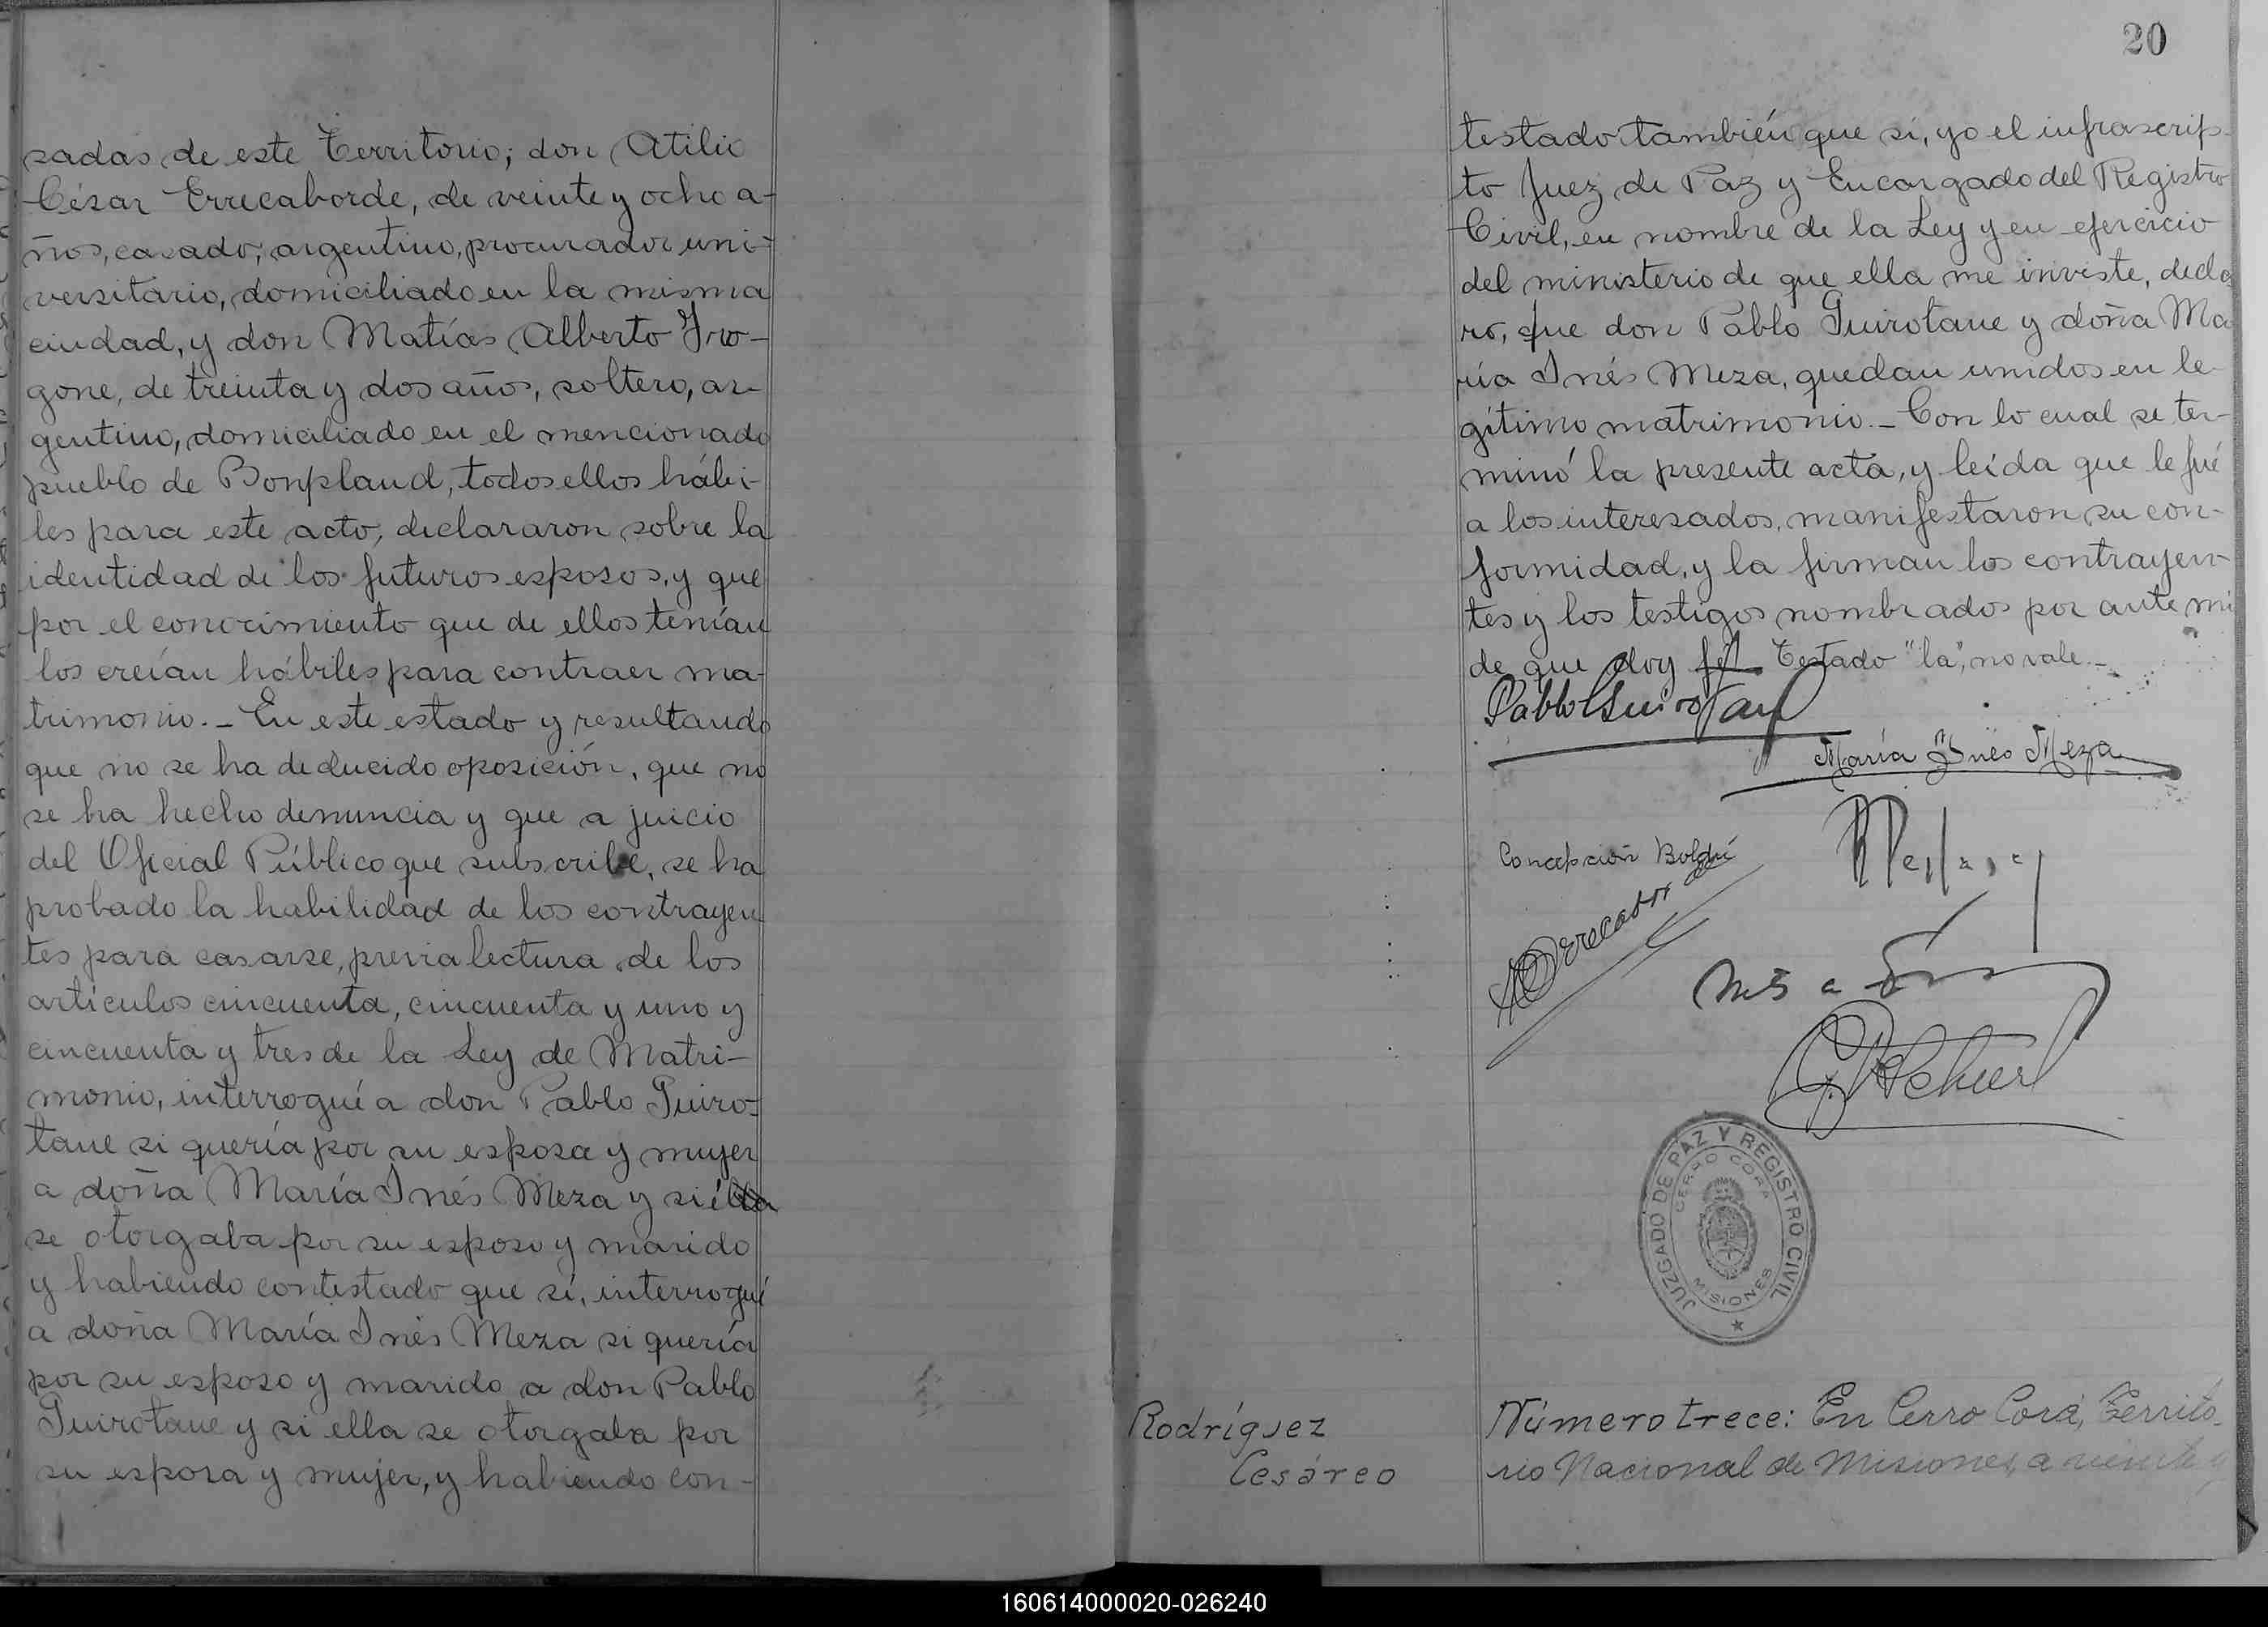 sadas de este Territorio; don Atilio
César Errecaborde, de veinte y ocho a-
ños, casado; argentino, procurador uni-
versitario, domiciliado en la misma
ciudad, y don Matías Alberto Fro-
gone, de treinta y dos años, soltero, ar-
gentino, domiciliado en el mencionado
pueblo de Bonpland, todos ellos hábi-
les para este acto, declararon sobre la
identidad de los futuros esposos, y que
por el conocimiento que de ellos tenían
los creían hábiles para contraer ma-
trimonio. - En este estado y resultando
que no se ha deducido oposición, que no
se ha hecho denuncia y que a juicio
del Oficial Público que subscribe, se ha
probado la habilidad de los contrayen-
tes para casarse, previa lectura de los
artículos cincuenta, cincuenta y uno y
cincuenta y tres de la Ley de Matri-
monio, interrogué a don Pablo Guiro-
tane si quería por su esposa y mujer
a doña María Inés Meza y si él
se otorgaba por su esposo y marido
y habiendo contestado que sí, interrogué
a doña María Inés Meza si quería
por su esposo y marido a don Pablo
Guirotane y si ella se otorgaba por
su esposa y mujer, y habiendo con-
20
testado también que sí, yo el infrascrip-
to Juez de Paz y Encargado del Registro
Civil, en nombre de la Ley y en ejercicio
del ministerio de que ella me inviste, decla
ro, que don Pablo Guirotane y doña Ma
ría Inés Meza, quedan unidos en le-
gítimo matrimonio. - Con lo cual se ter-
minó la presente acta, y leída que le fué
a los interesados, manifestaron su con-
formidad, y la firman los contrayen-
tes y los testigos nombrados por ante mi
de que doy fé. Testado "la", no vale. -
Pablo Guirotane
María Inés Meza
Concepción Boldú
Errecabor
JUZGADO DE PAZ Y REGISTRO CIVIL
CERRO CORA
MISIONES
Rodríguez
Cesáreo
Número trece: En Cerro Corá, Territo-
rio Nacional de Misiones, a veinte y
160614000020-026240